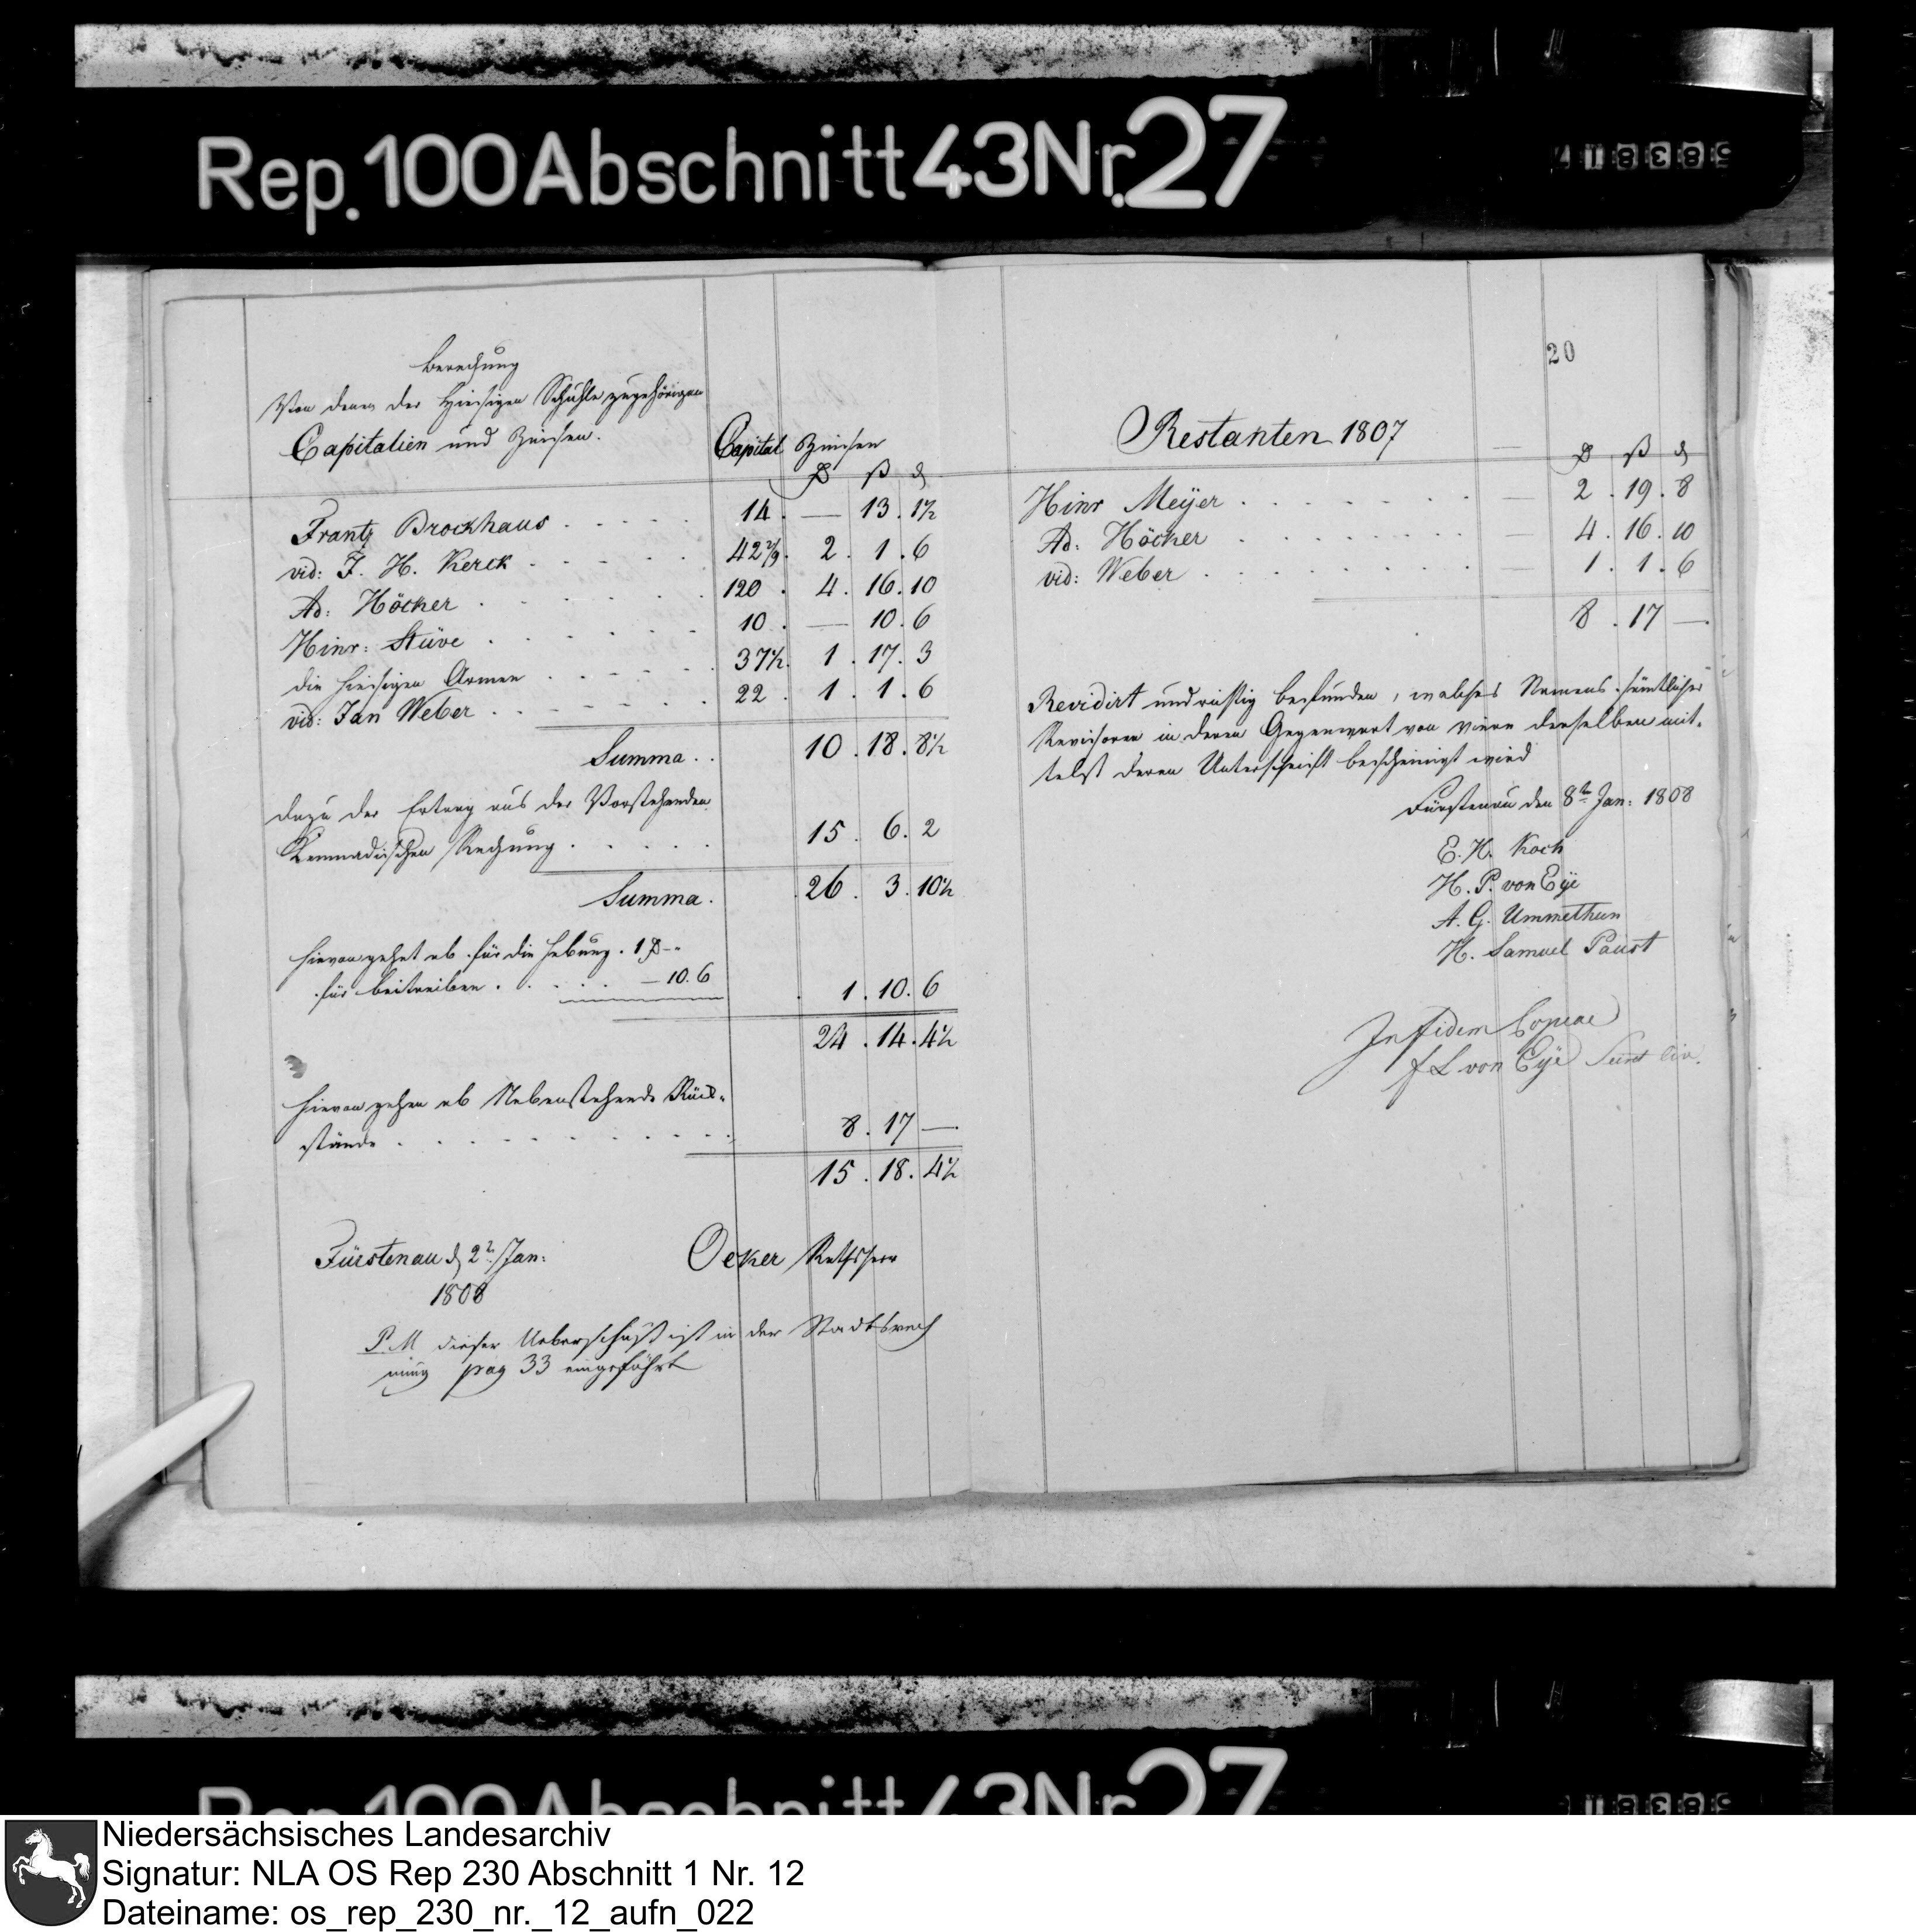 Rep. 100 Abschnitt 43 Nr. 27
Berechung
Von denen der Hiesigen Schuhle zugehörigen
Capitalien und Zinsen.
Capital Zinsen
Rt ß d
Frantz Brockhaus . . . . . 14 . — 13 . 1½
vid: F. H. Kerck . . . . . 42 2/9 . 2 . 1 . 6
Ad: Höcker . . . . . . 120 . 4 . 16 . 10
Hinr: Stüve . . . . . . 10 . — 10 . 6
die hiesigen Armen . . . . . 37½ . 1 . 17 . 3
vid: Jan Weber . . . . . . 22 . 1 . 1 . 6
Summa . . 10 . 18 . 8½
dazu der Ertrag aus der Vorstehenden
Rechung . . . . . 15 . 6 . 2
Summa . 26 . 3 . 10½
hievon gehet ab für die Hebung . 1 Rt -"
für beitreiben . . . . . — 10. 6
1 . 10 . 6
24 . 14 . 4½
hievon gehen ab Nebenstehende Rück-
stände . . . . . . . . . . . . 8 . 17 —
15 . 18 . 4½
Fürstenau d 2t Jan: Oeker Rathsherr
1808
P. M dieser Ueberschuß ist in der Stadtsrech
nung pag 33 eingeführt
20
Restanten 1807
Rt ß d
Hinr Meÿer . . . . . . . — 2 . 19 . 8
Ad: Höcker . . . . . . . . — 4 . 16 . 10
vid: Weber . . . . . . . . — 1 . 1 . 6
8 . 17 —
Revidirt und richtig befunden, welches Namens sämtlicher
Revisoren in deren Gegenwart von Viern derselben mit-
telst deren Unterschrift bescheinigt wird
Fürstenau den 8ten Jan: 1808
E. H. Koch
H. P. von Eÿe
A. G. Ummethun
H. Samuel Paust
In fidem Copiae
f L von Eÿe
Niedersächsisches Landesarchiv
Signatur: NLA OS Rep 230 Abschnitt 1 Nr. 12
Dateiname: os_rep_230_nr._12_aufn_022